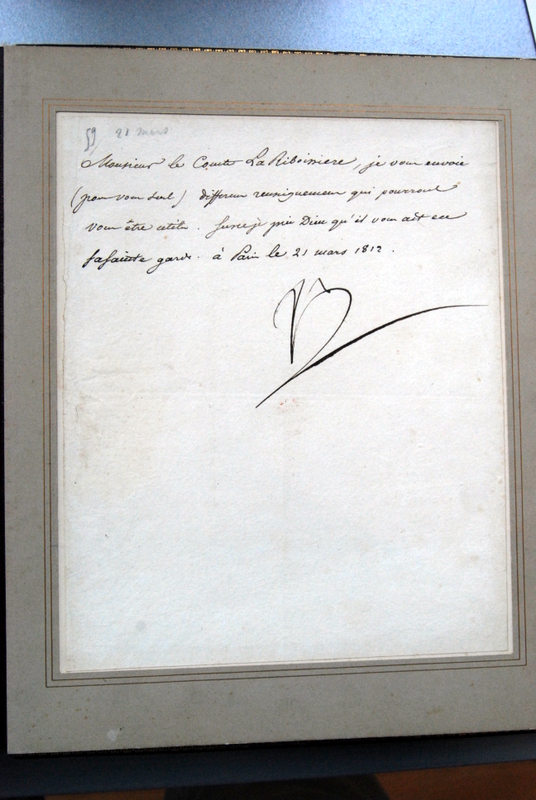 59 21 mars
Monsieur le Comte La Riboisiere, je vous envoie
(pour vous seul) différens renseignemens qui pourront
vous être utiles. Sur ce je prie Dieu qu'il vous ait en
sa sainte garde. à Paris le 21 mars 1812.